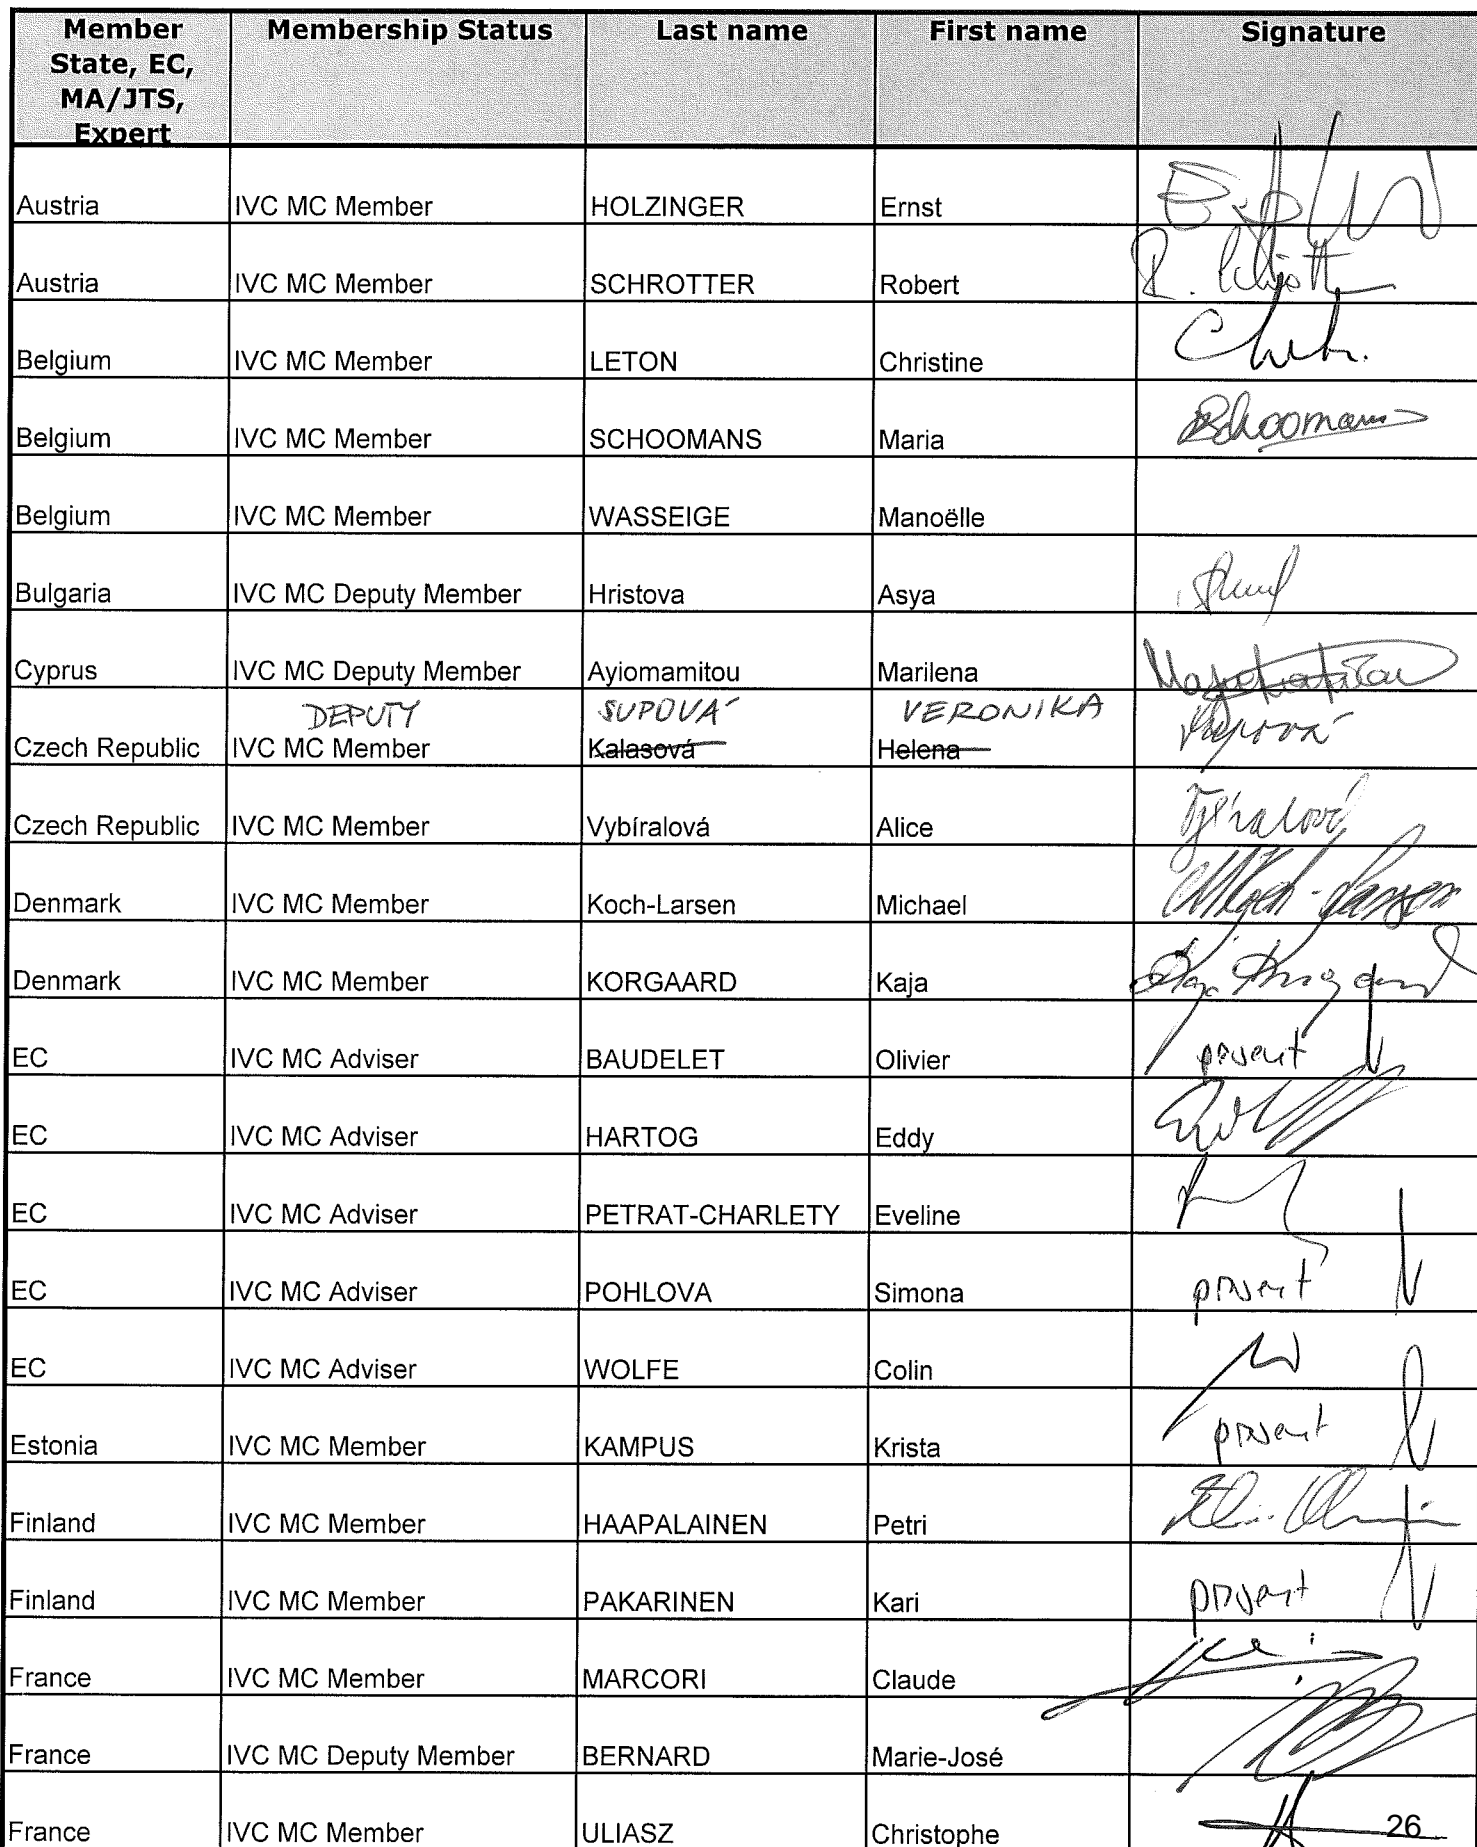 Member State, EC, MA/JTS, Expert Membership Status Last name First name Signature
Austria IVC MC Member HOLZINGER Ernst
Austria IVC MC Member SCHROTTER Robert
Belgium IVC MC Member LETON Christine
Belgium IVC MC Member SCHOOMANS Maria Schoomans
Belgium IVC MC Member WASSEIGE Manoëlle
Bulgaria IVC MC Deputy Member Hristova Asya
Cyprus IVC MC Deputy Member Ayiomamitou Marilena
DEPUTY SUPOVÁ VERONIKA
Czech Republic IVC MC Member Kalasová Helena
Czech Republic IVC MC Member Vybíralová Alice
Denmark IVC MC Member Koch-Larsen Michael
Denmark IVC MC Member KORGAARD Kaja
EC IVC MC Adviser BAUDELET Olivier present
EC IVC MC Adviser HARTOG Eddy
EC IVC MC Adviser PETRAT-CHARLETY Eveline
EC IVC MC Adviser POHLOVA Simona present
EC IVC MC Adviser WOLFE Colin
Estonia IVC MC Member KAMPUS Krista present
Finland IVC MC Member HAAPALAINEN Petri
Finland IVC MC Member PAKARINEN Kari present
France IVC MC Member MARCORI Claude
France IVC MC Deputy Member BERNARD Marie-José
France IVC MC Member ULIASZ Christophe
26